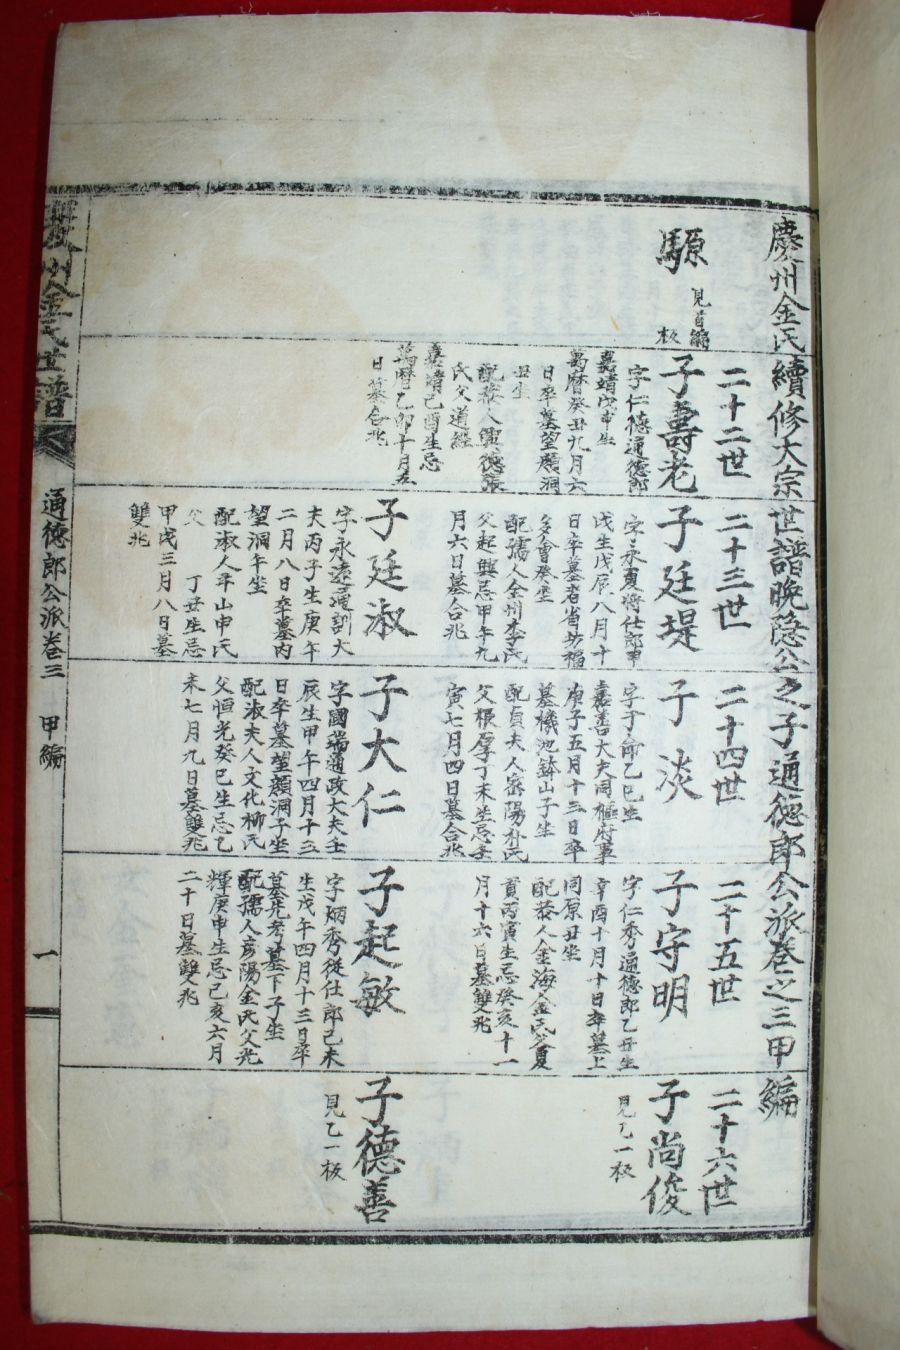 慶州金氏續修大宗世譜晩隐公之子通德郎公派卷之三甲編
騵
見首編
板
二十二世
子壽老
字仁德通德郎
嘉靖戊申生
萬曆癸丑九月六
日卒墓望願洞
丑坐
配恭人興德張
氏父道經
嘉靖己酉生忌
萬曆乙卯十月五
日墓合兆
二十三世
子廷堤
字永夏將仕郎
戊生戊辰八月十
配孺人全州李氏
父起興忌甲午九
月六日墓合兆
子廷淑
字永遠通訓大
夫丙子生庚午
二月八日卒墓内
望洞午坐
配淑人平山申氏
父 丁丑生忌
甲戌三月八日墓
雙兆
二十四世
子淡
嘉善大夫同樞府事
庚子五月十三日卒
墓機池鉢山子坐
配貞夫人密陽朴氏
父根厚丁未生忌壬
寅七月四日墓合兆
子大仁
字國端通政大夫壬
辰生甲午四月十三
日卒墓望願洞子坐
配淑夫人文化柳氏
父恒光癸巳生忌乙
未七月九日墓雙兆
二十五世
子守明
字仁秀通德郎乙丑生
辛酉十月十日卒墓上
同原丑坐
配恭人金海金氏父夏
貢丙寅生忌癸亥十一
月十六日墓雙兆
子起敏
字炳秀從仕郎己未
生戊午四月十三日卒
墓先考墓下子坐
配孺人彦陽金氏父光
輝庚申生忌己亥六月
二十日墓雙兆
二十六世
子尚俊
見乙一板
子德善
見乙一板
慶州金氏世譜
通德郎公派卷三 甲編
一